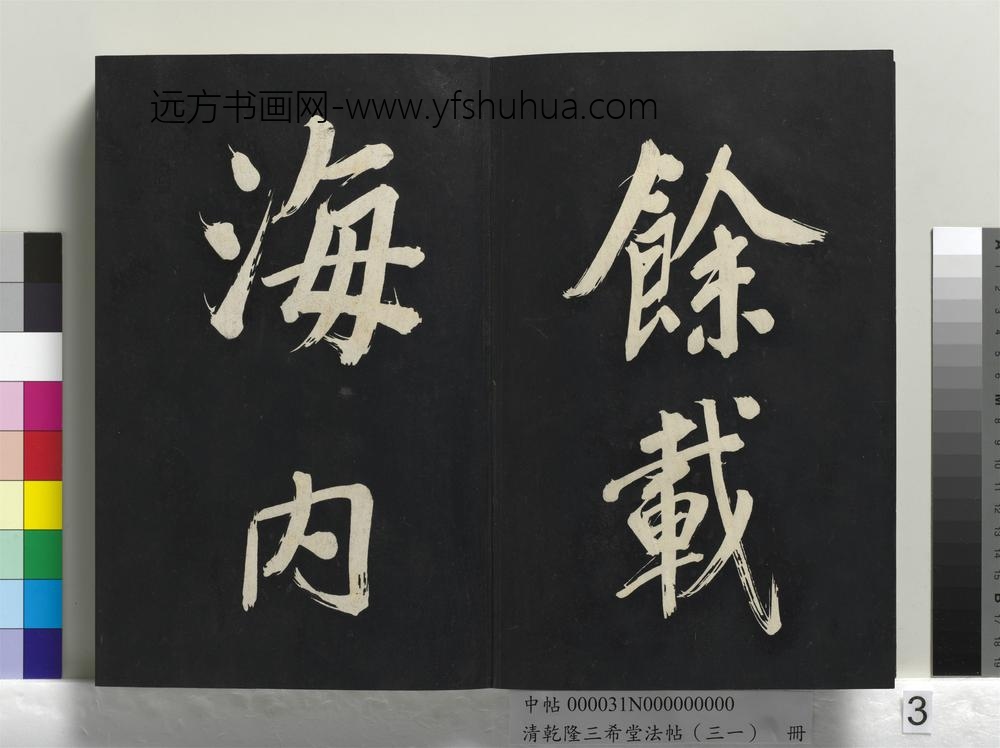 远方书画网-www.yfshuhua.com
餘載
海内
中帖 000031N000000000
清乾隆三希堂法帖（三一） 冊
3